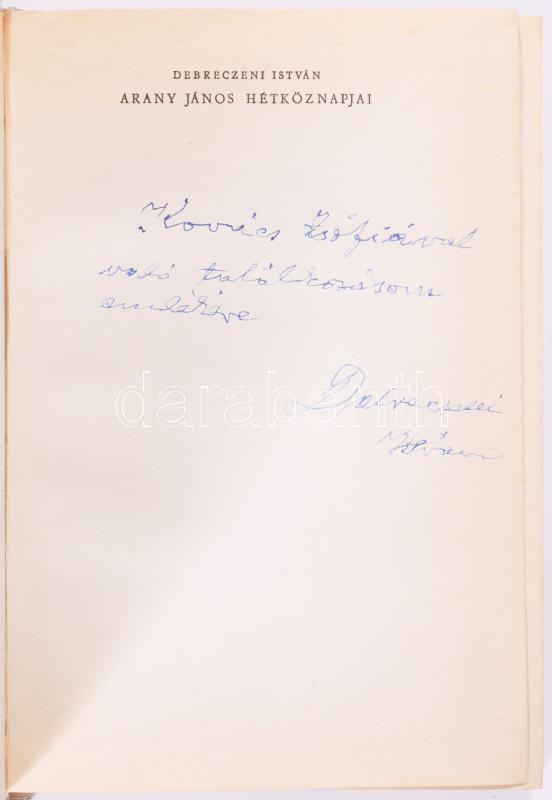 DEBRECZENI ISTVÁN
ARANY JÁNOS HÉTKÖZNAPJAI
Kovács Zsófiával
való találkozásom
emlékére
darabanth
Debreczeni
István